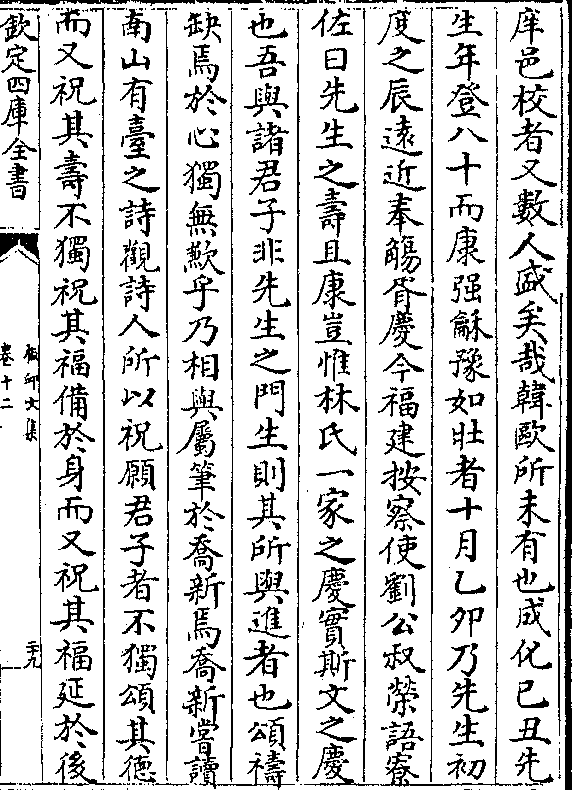 庠邑校者又數人盛矣哉韓歐所未有也成化己丑先
生年登八十而康强龢豫如壯者十月乙卯乃先生初
度之辰遠近奉觴胥慶今福建按察使劉公叔榮語寮
佐曰先生之壽且康豈惟林氏一家之慶實斯文之慶
也吾與諸君子非先生之門生則其所與進者也頌禱
缺焉於心獨無歉乎乃相與屬筆於喬新焉喬新嘗讀
南山有臺之詩觀詩人所以祝願君子者不獨頌其德
而又祝其壽不獨祝其福備於身而又祝其福延於後
欽定四庫全書
椒邱文集
卷十二
二十九